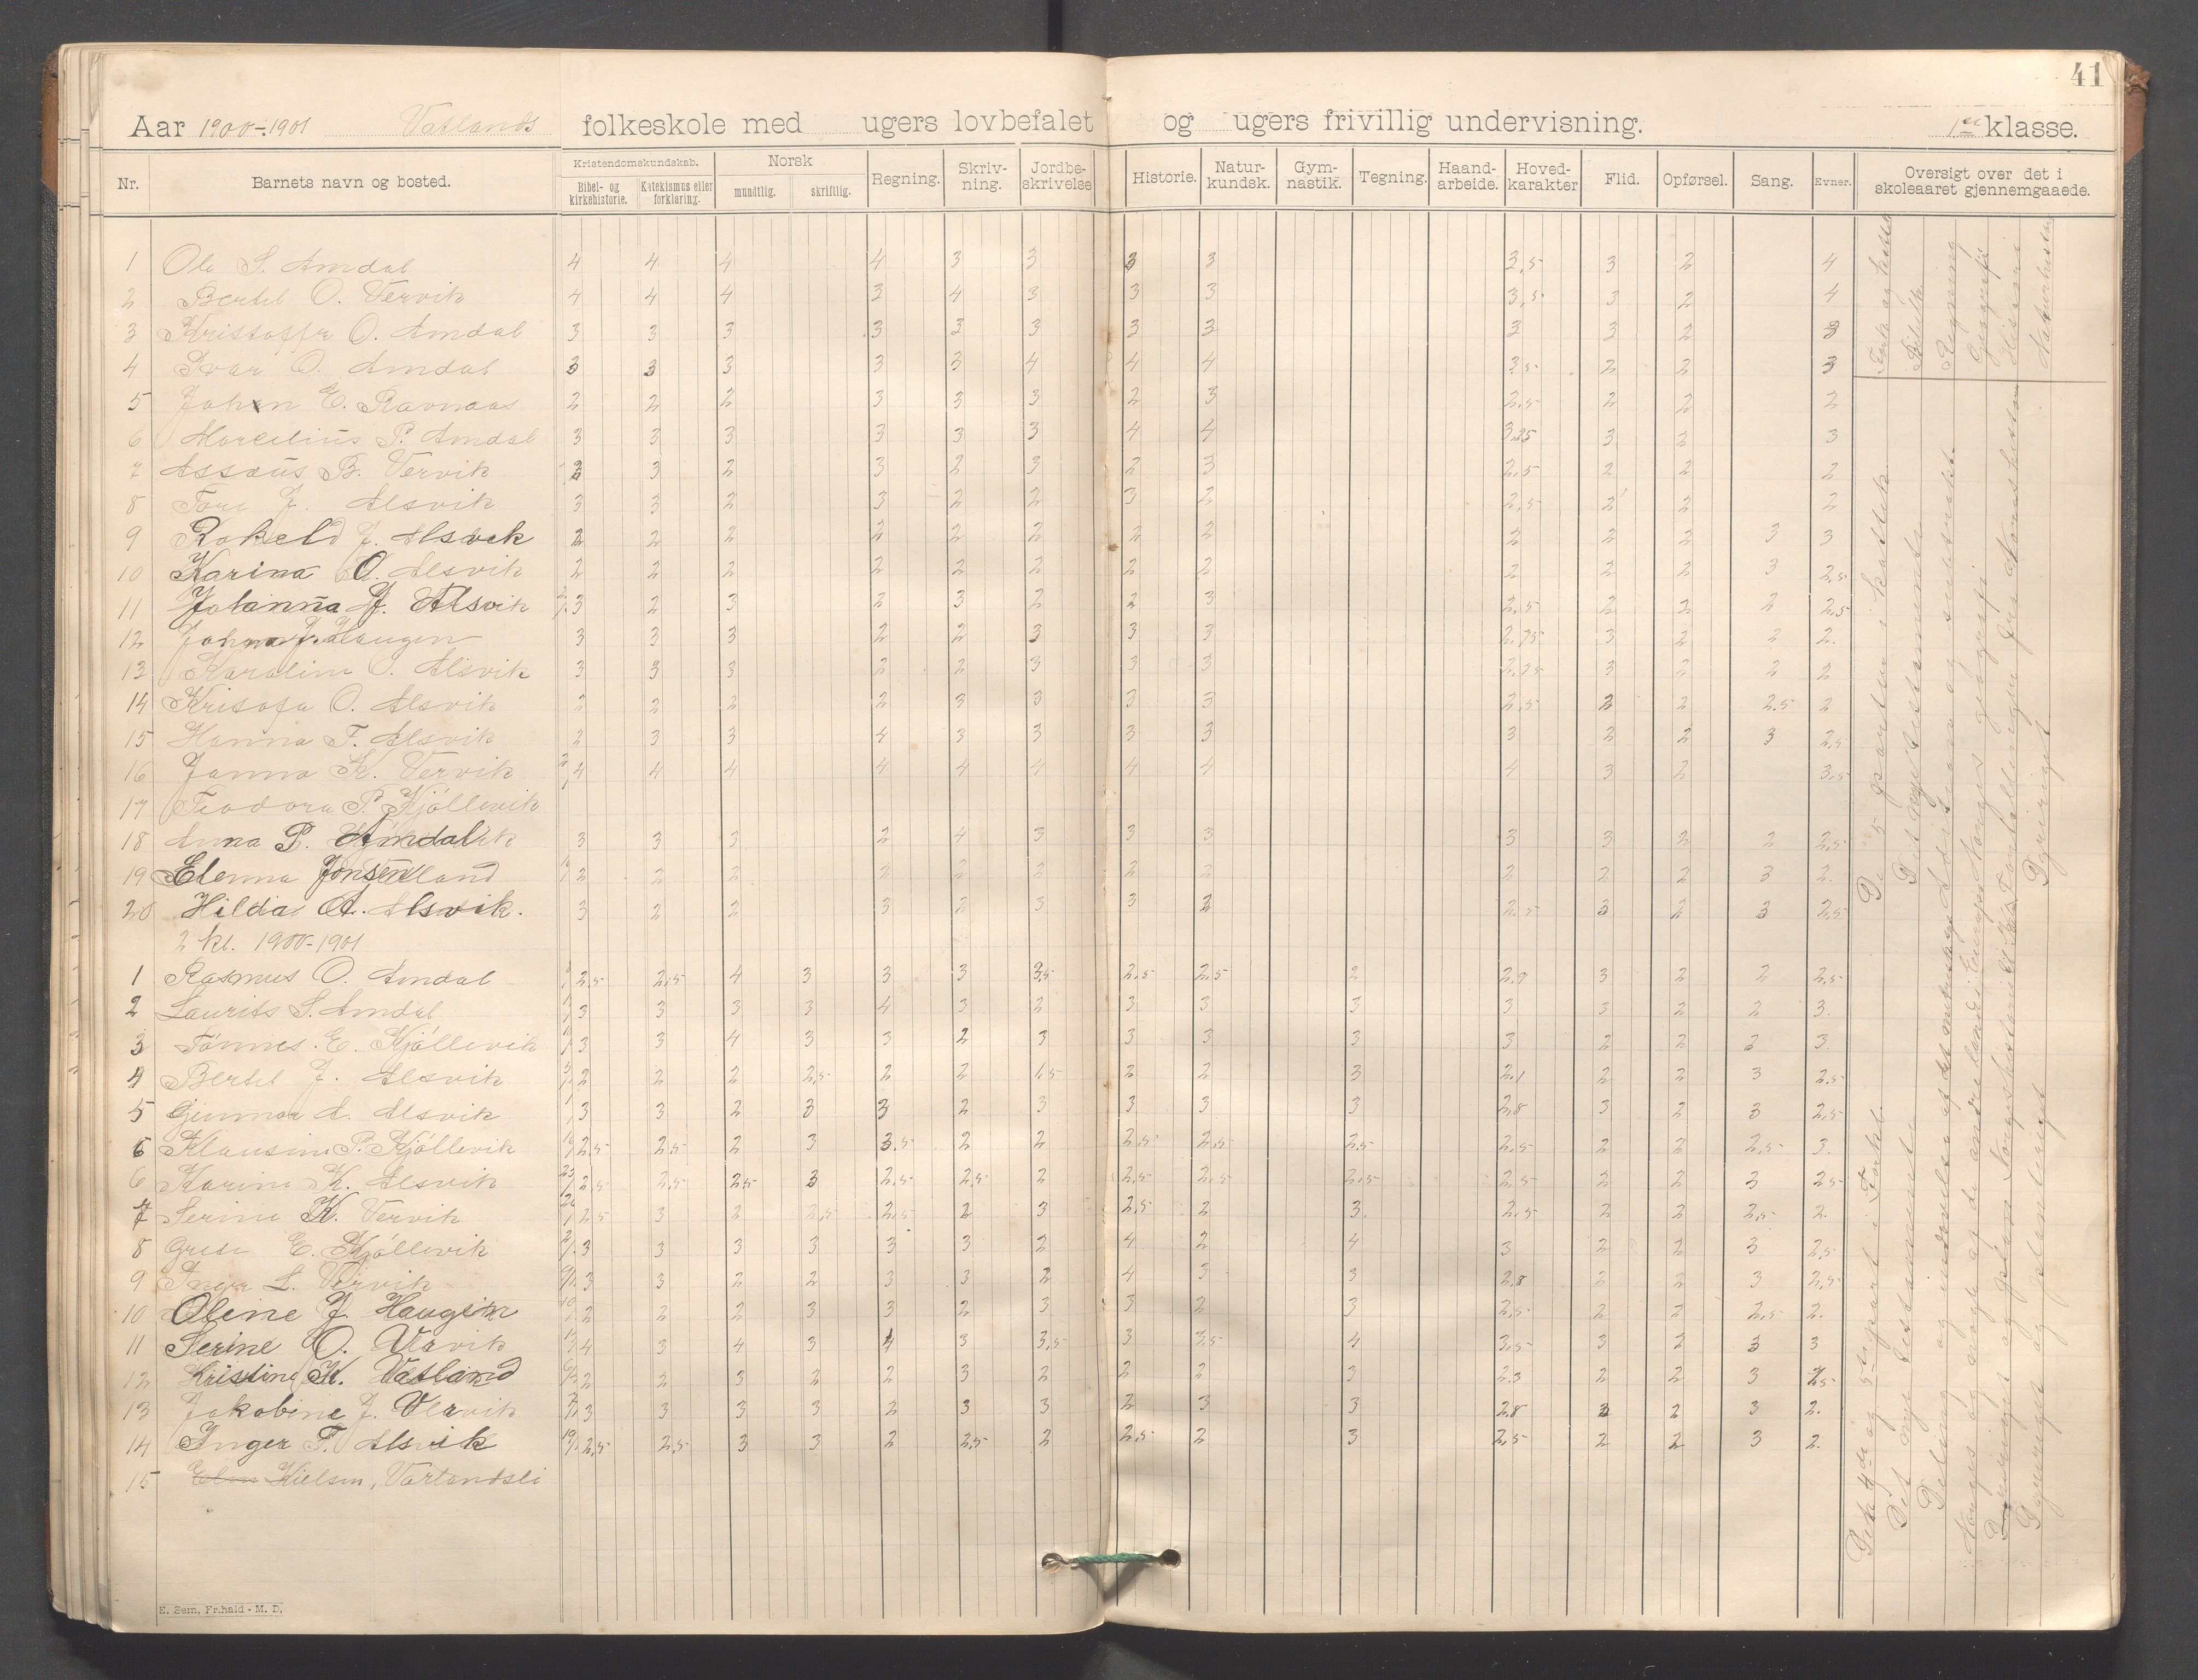 41
Aar 1900-1901 Vatlands folkeskole med ugers lovbefalet og ugers frivillig undervisning. 1ste klasse.
Nr. Barnets navn og bosted. Kristendomskundskab. Bibel- og kirkehistorie. Katekismus eller forklaring. Norsk mundtlig. skriftlig. Regning. Skriv-ning. Jordbe-skrivelse Historie. Natur-kundsk. Gym-nastik. Tegning. Haand-arbeide. Hoved-karakter Flid. Opførsel. Sang. Evner. Oversigt over det i skoleaaret gjennemgaaede.
1 Ole S. Amdal 4 4 4 4 3 3 3 3 3,5 3 2 4
2 Bertel O. Vervik 4 4 4 3 4 3 3 3 3,5 3 2 4
3 Kristoffer O. Amdal 3 3 3 3 3 3 3 3 3 3 2 3
4 Ivar O. Amdal 3 3 3 3 3 4 4 4 3,5 2 2 3
5 Johan E. Ravnaas 2 2 2 3 3 3 2 3 2,5 2 2 2
6 Marcelius P. Amdal 3 3 3 3 3 3 4 4 3,25 3 2 3
7 Assaus B. Vervik 2 3 2 3 2 3 2 3 2,5 2 2 2
8 Tore J. Alsvik 3 3 2 3 2 2 3 2 2,5 2 2 2
9 Rakel J. Alsvik 2 2 2 2 2 2 2 2 2 2 2 3 3
10 Karina O. Alsvik 2 2 2 2 2 2 2 2 2 2 2 3 2,5
11 Johanna J. Alsvik 3 2 3 2 3 2 2 3 2,5 2 2 2 2,5
12 Johna J. Haugen 3 3 3 2 2 3 3 3 2,75 3 2 2 2.
13 Karoline O. Alsvik 3 3 3 2 2 3 3 3 2,75 3 2 2 2
14 Krisofa O. Alsvik 2 2 2 2 3 3 3 3 2,5 3 2 2,5 2
15 Hanna T. Alsvik 2 3 3 4 3 3 3 3 3 2 2 3 2,5
16 Janna K. Vervik 4 4 4 4 4 4 4 4 4 3 2 3,5
17 Teodora P. Kjöllevik
18 Anna P. Amdal 3 3 3 2 4 3 3 3 3 3 2 2 2,5
19 Elenna Jonsen 2 2 2 2 2 2 2 2 2 2 2 3 2.
20 Hilda A. Alsvik. 3 2 2 3 2 3 3 2 2,5 3 2 3 2,5
2 kl. 1900-1901
1 Rasmus O. Amdal 2,5 2,5 4 3 3 3 3,5 2,5 2,5 2 2,9 3 2 2 2,5
2 Laurits S. Amdal 3 3 3 3 4 3 2 3 3 3 3 3 2 2 3.
3 Tönnes E. Kjöllevik 3 3 4 3 3 2 3 3 3 3 3 2 2 2 3.
4 Bertel J. Alsvik 2 2 2 2,5 2 2 1,5 2 2 3 2,1 2 2 3 2,5
5 Gunnar A. Alsvik 3 3 2 3 3 2 3 3 3 3 2,8 3 2 3 2,5
6 Klausine P. Kjöllevik 2,5 2,5 2 3 3,5 2 2 2,5 2,5 2,5 2,5 2 2 2,5 3.
6 Karine K. Alsvik 2,5 2,5 2,5 3 2,5 2,5 2 2,5 2,5 2,5 2,5 2 2 3 2,5
7 Serine K. Vervik 2,5 3 2 2,5 2,5 2 3 2,5 2 3. 2,5 2 2 2,5 2.
8 Grete E. Kjöllevik 3 3 3 3 3 3 2 4 2 4 3 2 2 3 2,5
9 Inga L. Vervik 3 3 2 2 3 3 2 4 3 3 2,8 2 2 3 2,5
10 Oline J. Haugen 2 2 2 3 3 2 3 3 2 3 2,5 2 2 2,5 2.
11 Serine O. Vervik 4 3 4 3 4 3 3,5 3 3,5 4 3,5 3 2 3 3
12 Kristine K. Vatland 2 2 3 2 2 3 2 2 2 3 2,3 2 2 3 2,5
13 Jakobine J. Vervik 3 3 3 3 2 3 3 2 3 3 2,8 3 2 3 2.
14 Inger T. Alsvik 2,5 2,5 3 3 2 2,5 2 2,5 2 3 2,5 2 2 3 2.
15 Nielsen, Vartandsli
Regning
Det nye testamente
Norges geografi
Dyreriget
Det nye testamente
Dyreriget og planteriget
E. Sem, Fr.hald - M. D.